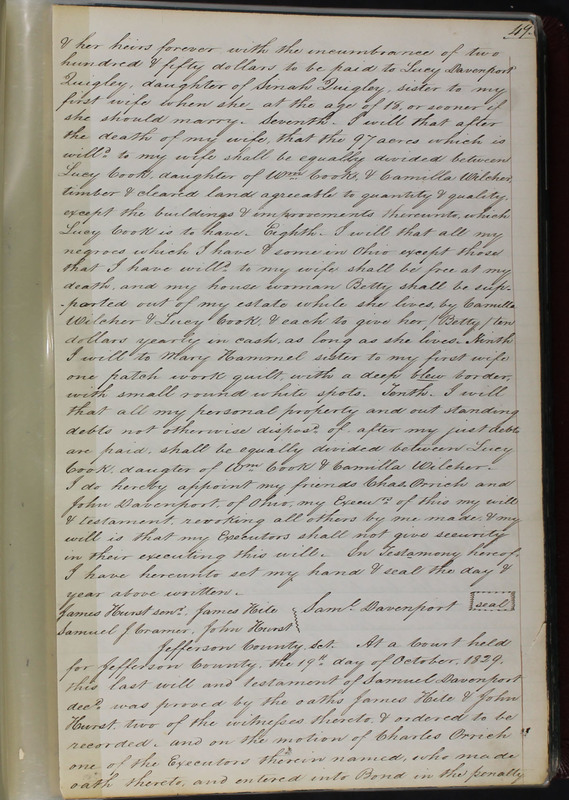 49
& her heirs forever with the incumbrance of two
hundred & fifty dollars to be paid to Lucy Davenport
Quigley, daughter of Sinah Quigley, sister to my
first wife when she, at the age of 18, or sooner if
she should marry. Seventh. I will that after
the death of my wife, that the 97 acres which is
will.d to my wife shall be equally divided between
Lucy Cook, daughter of Wm Cook, & Camilla Wilcher,
timber & cleared land agreeable to quantity & quality,
except the buildings & improvements thereunto, which
Lucy Cook is to have. Eighth. I will that all my
negroes which I have & some in Ohio except those
that I have will.d to my wife shall be free at my
death, and my house woman Betty shall be sup-
-ported out of my estate while she lives, by Camilla
Wilcher & Lucy Cook, & each to give her (Betty) ten
dollars yearly in cash, as long as she lives. Ninth
I will to Mary Hammel sister to my first wife
one patch work quilt, with a deep blew border,
with small round white spots. Tenth. I will
that all my personal property and out standing
debts not otherwise dispos.d of, after my just debts
are paid, shall be equally divided between Lucy
Cook, daugter of Wm Cook & Camilla Wilcher.
I do hereby appoint my friends Chas. Orrick and
John Davenport, of Ohio, my Execu.rs of this my will
& testament, revoking all others by me made, & my
will is that my Executors shall not give security
in their executing this will. In Testamony hereof
I have hereunto set my hand & seal the day &
year above written.
James Hurst sen.r, James Hite Sam.l Davenport seal
Samuel J Cramer, John Hurst
Jefferson County, sct. At a Court held
for Jefferson County, the 19th day of October, 1829,
this last will and testament of Samuel Davenport
dec.d was proved by the oaths James Hite & John
Hurst, two of the witnesses thereto, & ordered to be
recorded, and on the motion of Charles Orrick
one of the Executors therein named, who made
oath thereto, and entered into Bond in the penalty